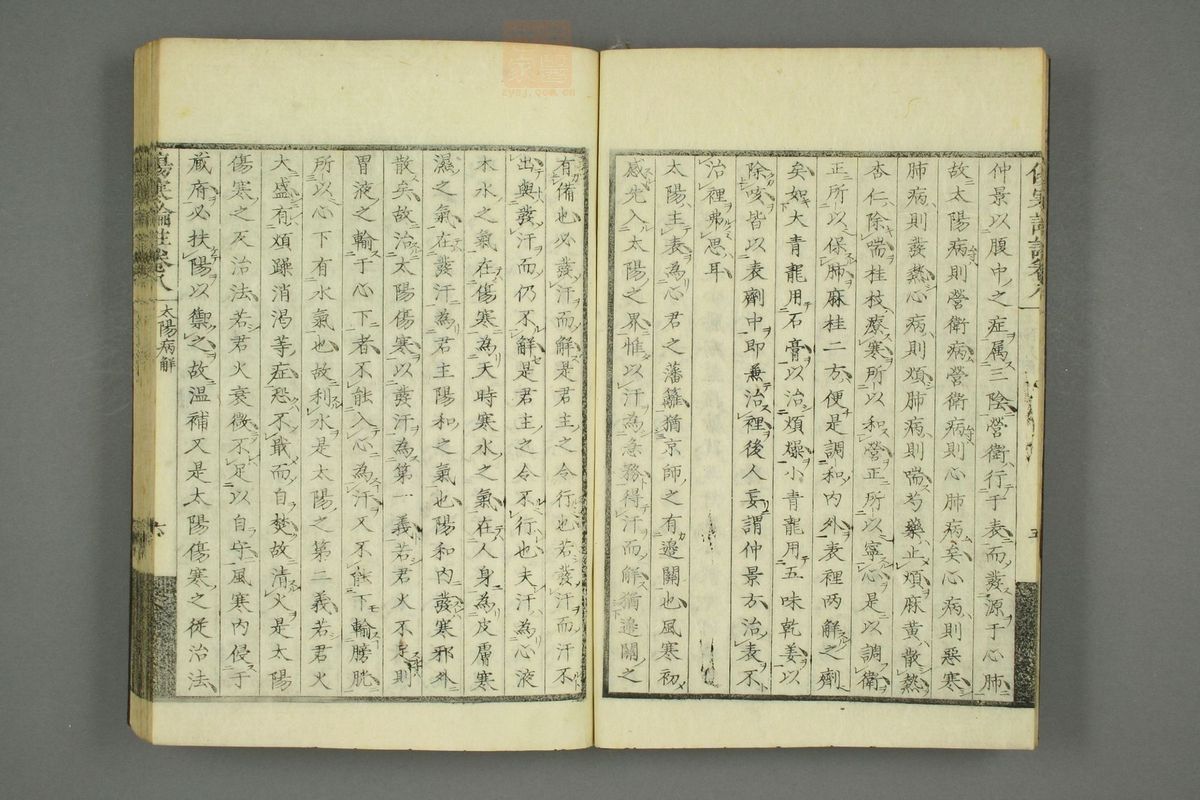 仲景以腹中之症属三陰營衛行于表而發源于心肺
故太陽病則營衛病營衛病則心肺病矣心病則惡寒
肺病則發熱心病則煩肺病則喘芍藥止煩麻黄散熱
杏仁除喘桂枝療寒所以和營正所以寧心是以調衛
正所以保肺麻桂二方便是調和内外表裡两解之劑
矣如大青龍用石膏以治煩燥小青龍用五味乾姜以
除咳皆以表劑中即兼治裡後人妄謂仲景方治表不
治裡弗思耳
太陽主表為心君之藩籬猶京師之有邉關也風寒初
感先入太陽之界惟以汗為急務得汗而解猶邉關之
有備也必發汗而解是君主之令行也若發汗而汗不
出與發汗而仍不解是君主之令不行也夫汗為心液
本水之氣在傷寒為天時寒水之氣在人身為皮膚寒
濕之氣在發汗為君主陽和之氣也陽和内發寒邪外
散矣故治太陽傷寒以發汗為第一義若君火不則
胃液之輸于心下者不能入心為汗又不能下輸膀胱
所以心下有水氣也故利水是太陽之第二義若君火
大盛有煩躁消渴等症恐不戢而自焚故清火是太陽
傷寒之反治法若君火衰微不足以自守風寒内侵于
蔵府必扶陽以禦之故温補又是太陽傷寒之從治法
傷寒論註卷八
太陽病解
六
五